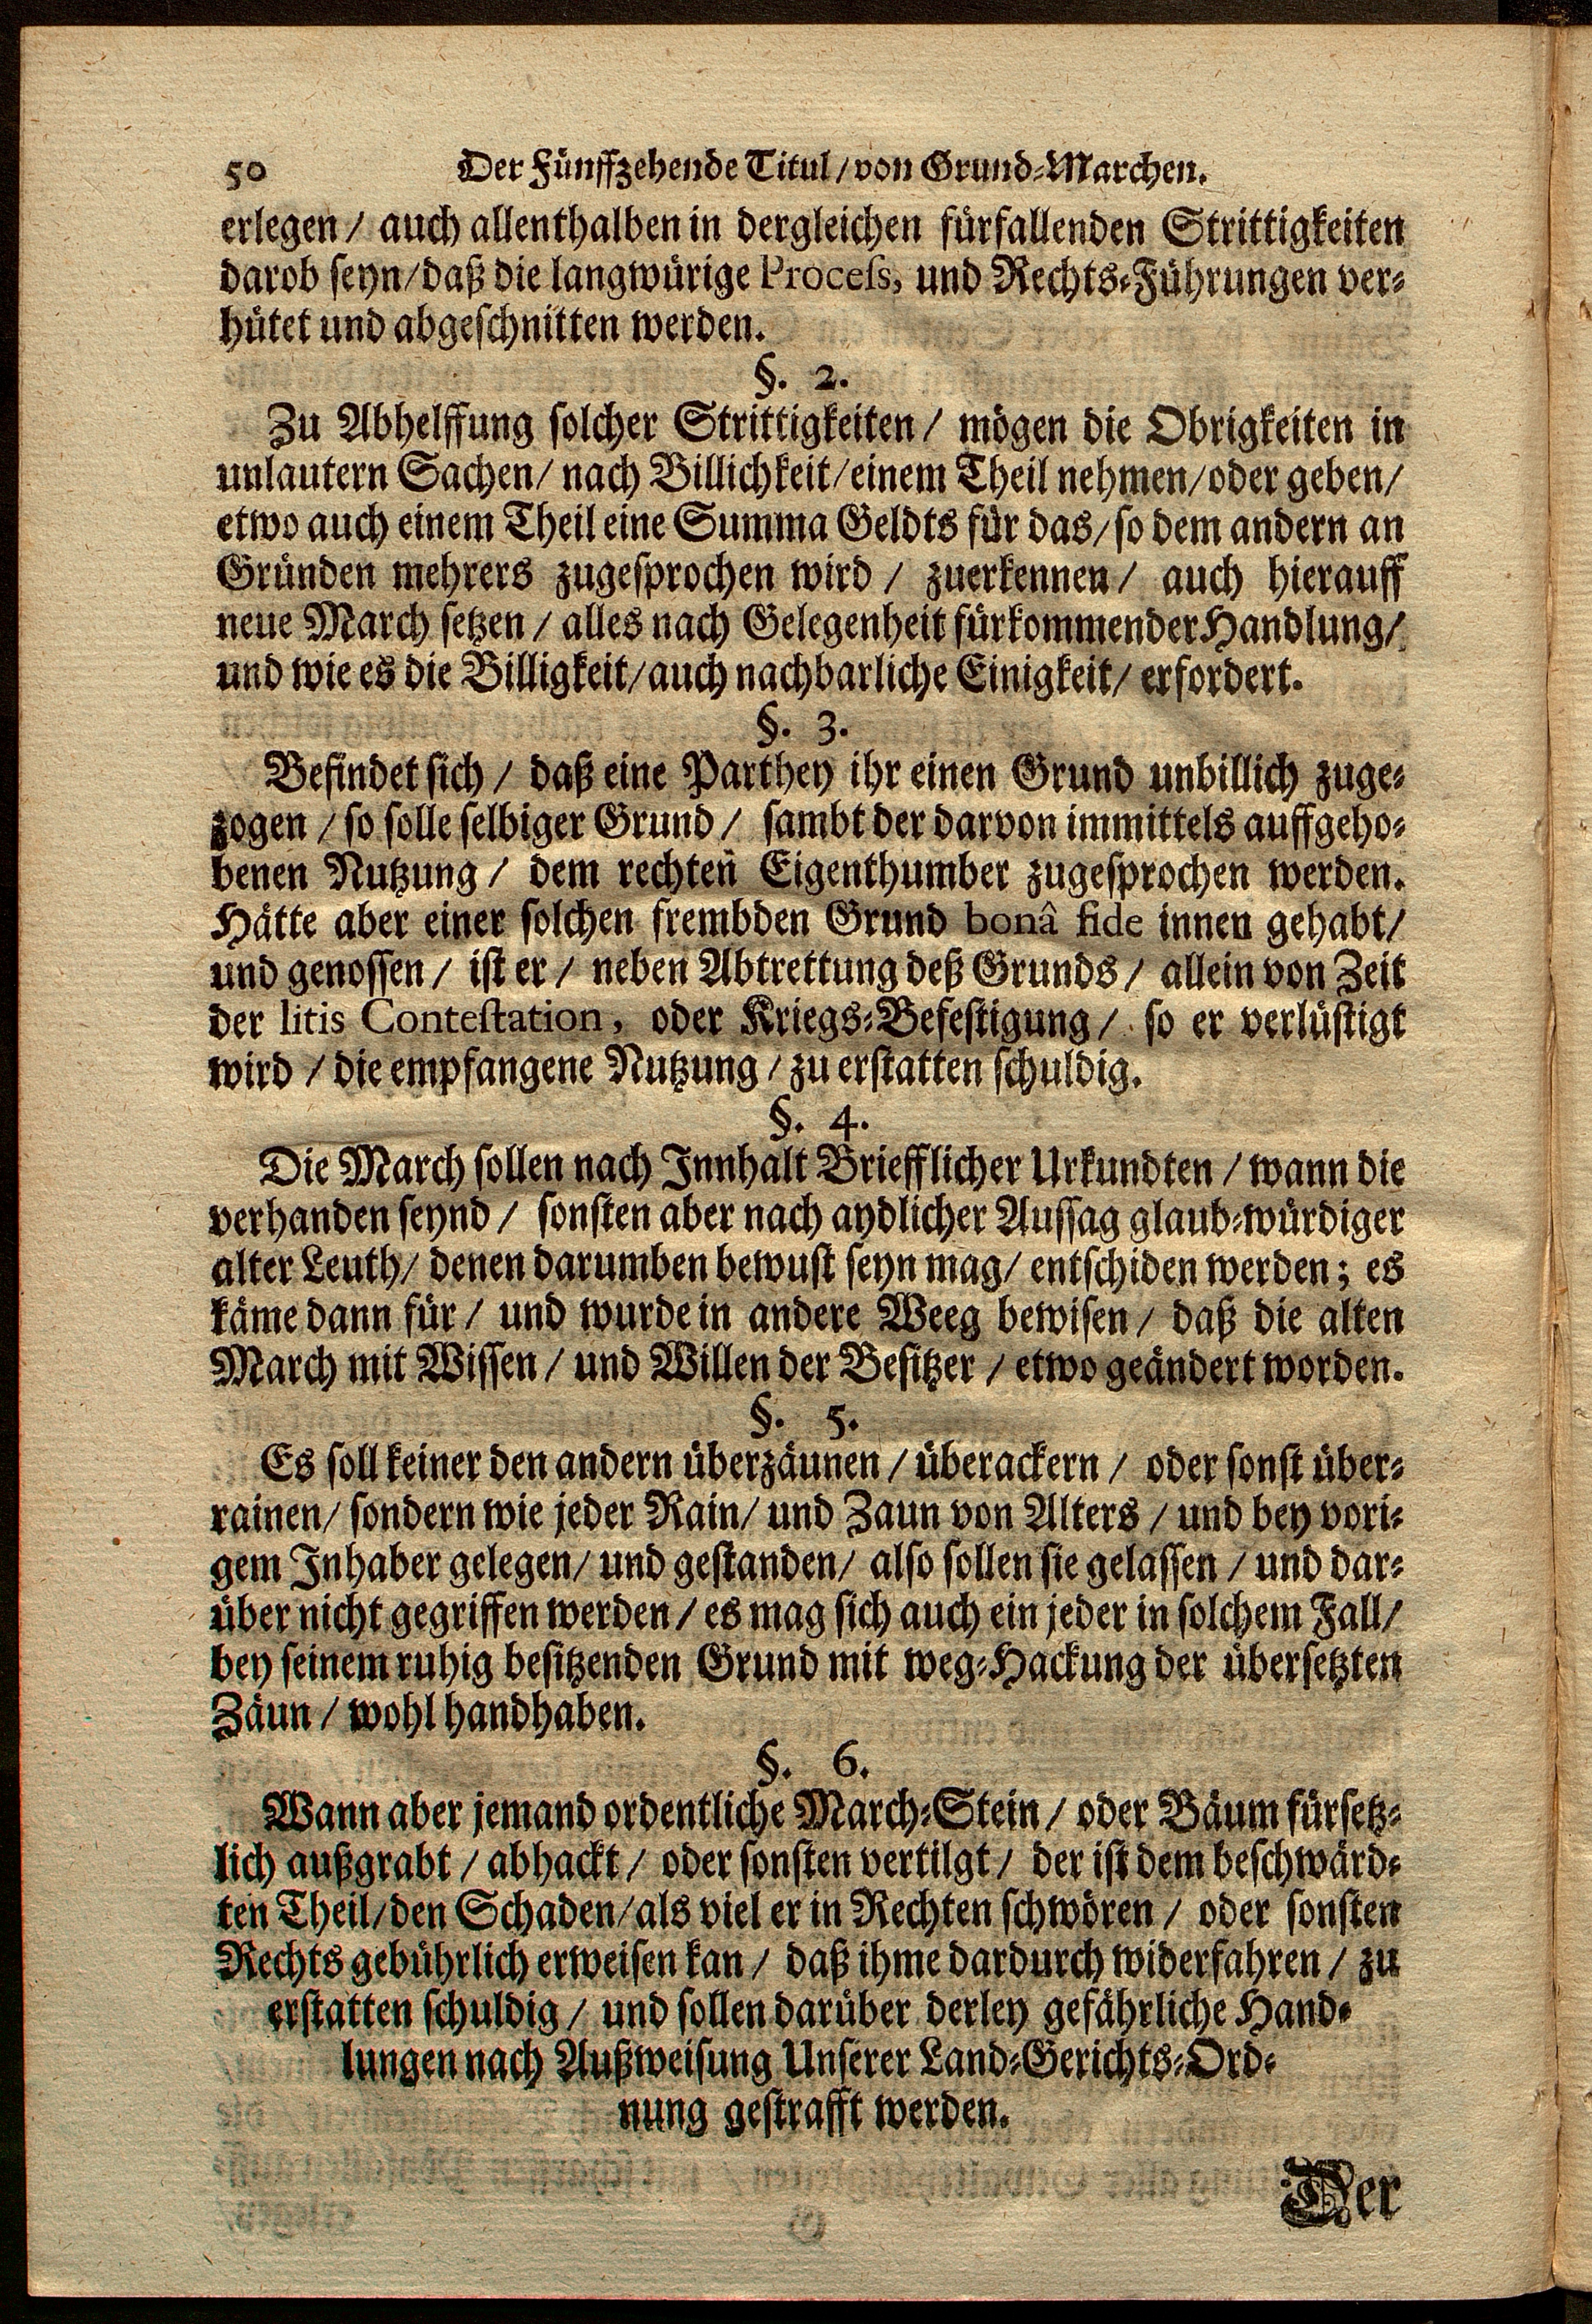 50 Der Fünffzehende Titul / von Grund-Marchen.
erlegen / auch allenthalben in dergleichen fürfallenden Strittigkeiten
darob seyn / daß die langwürige Process, und Rechts-Führungen ver-
hütet und abgeschnitten werden.
§. 2.
Zu Abhelffung solcher Strittigkeiten / mögen die Obrigkeiten in
unlautern Sachen / nach Billichkeit / einem Theil nehmen / oder geben /
etwo auch einem Theil eine Summa Geldts für das / so dem andern an
Gründen mehrers zugesprochen wird / zuerkennen / auch hierauff
neue March setzen / alles nach Gelegenheit fürkommender Handlung /
und wie es die Billigkeit / auch nachbarliche Einigkeit / erfordert.
§. 3.
Befindet sich / daß eine Parthey ihr einen Grund unbillich zuge-
zogen / so solle selbiger Grund / sambt der darvon immittels auffgeho-
benen Nutzung / dem rechten Eigenthumber zugesprochen werden.
Hätte aber einer solchen frembden Grund bonâ fide innen gehabt /
und genossen / ist er / neben Abtrettung deß Grunds / allein von Zeit
der litis Contestation, oder Kriegs-Befestigung / so er verlüstigt
wird / die empfangene Nutzung / zu erstatten schuldig.
§. 4.
Die March sollen nach Innhalt Briefflicher Urkundten / wann die
verhanden seynd / sonsten aber nach aydlicher Aussag glaub-würdiger
alter Leuth / denen darumben bewust seyn mag / entschiden werden; es
käme dann für / und wurde in andere Weeg bewisen / daß die alten
March mit Wissen / und Willen der Besitzer / etwo geändert worden.
§. 5.
Es soll keiner den andern überzäunen / überackern / oder sonst über-
rainen / sondern wie jeder Rain / und Zaun von Alters / und bey vori-
gem Inhaber gelegen / und gestanden / also sollen sie gelassen / und dar-
über nicht gegriffen werden / es mag sich auch ein jeder in solchem Fall /
bey seinem ruhig besitzenden Grund mit weg-Hackung der übersetzten
Zäun / wohl handhaben.
§. 6.
Wann aber jemand ordentliche March-Stein / oder Bäum fürsetz-
lich außgrabt / abhackt / oder sonsten vertilgt / der ist dem beschwärd-
ten Theil / den Schaden / als viel er in Rechten schwören / oder sonsten
Rechts gebührlich erweisen kan / daß ihme dardurch widerfahren / zu
erstatten schuldig / und sollen darüber derley gefährliche Hand-
lungen nach Außweisung Unserer Land-Gerichts-Ord-
nung gestrafft werden.
Der